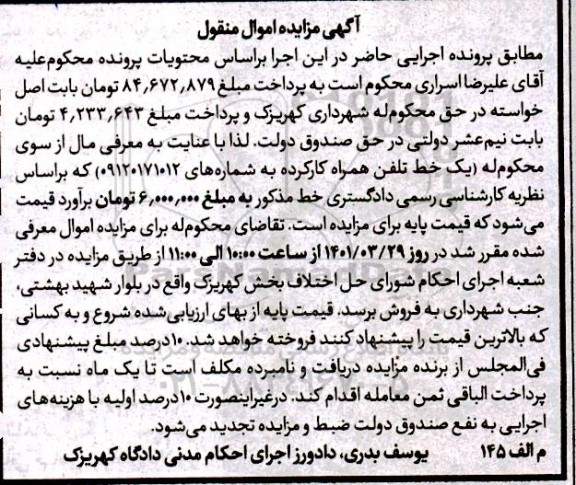 آگهی مزایده اموال منقول
مطابق پرونده اجرایی حاضر در این اجرا براساس محتویات پرونده محکوم‌علیه
آقای علیرضا اسراری محکوم است به پرداخت مبلغ ۸۴٫۶۷۲٫۸۷۹ تومان بابت اصل
خواسته در حق محکوم‌له شهرداری کهریزک و پرداخت مبلغ ۴٫۲۳۳٫۶۴۳ تومان
بابت نیم‌عشر دولتی در حق صندوق دولت. لذا با عنایت به معرفی مال از سوی
محکوم‌له (یک خط تلفن همراه کارکرده به شماره‌های ۰۹۱۲۰۱۷۱۰۱۲) که براساس
نظریه کارشناسی رسمی دادگستری خط مذکور به مبلغ ۶٫۰۰۰٫۰۰۰ تومان برآورد قیمت
می‌شود که قیمت پایه برای مزایده است. تقاضای محکوم‌له برای مزایده اموال معرفی
شده مقرر شد در روز ۱۴۰۱/۰۳/۲۹ از ساعت ۱۰:۰۰ الی ۱۱:۰۰ از طریق مزایده در دفتر
شعبه اجرای احکام شورای حل اختلاف بخش کهریزک واقع در بلوار شهید بهشتی،
جنب شهرداری به فروش برسد. قیمت پایه از بهای ارزیابی‌شده شروع و به کسانی
که بالاترین قیمت را پیشنهاد کنند فروخته خواهد شد. ۱۰درصد مبلغ پیشنهادی
فی‌المجلس از برنده مزایده دریافت و نامبرده مکلف است تا یک ماه نسبت به
پرداخت الباقی ثمن معامله اقدام کند. درغیراینصورت ۱۰درصد اولیه با هزینه‌های
اجرایی به نفع صندوق دولت ضبط و مزایده تجدید می‌شود.
م الف ۱۴۵ یوسف بدری، دادورز اجرای احکام مدنی دادگاه کهریزک